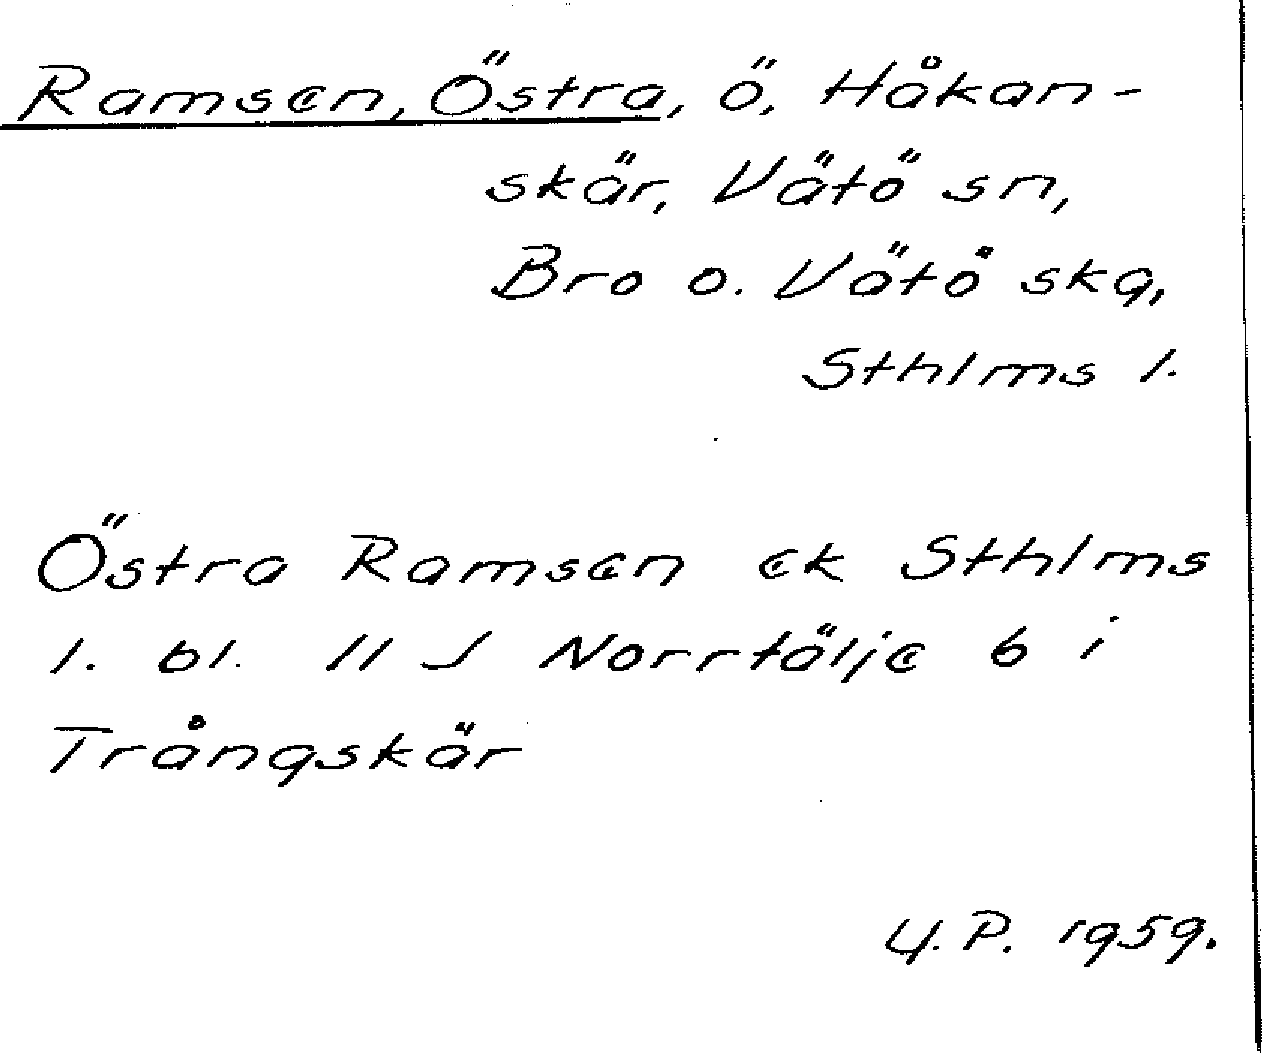 Ramsen, Östra, ö, Håkan-
skär, Vätö sn,
Bro o. Vätö skg,
Sthlms l.
Östra Ramsen ek Sthlms
l. bl. 11 J Norrtälje 6 i
Trångskär
Y. P. 1959.